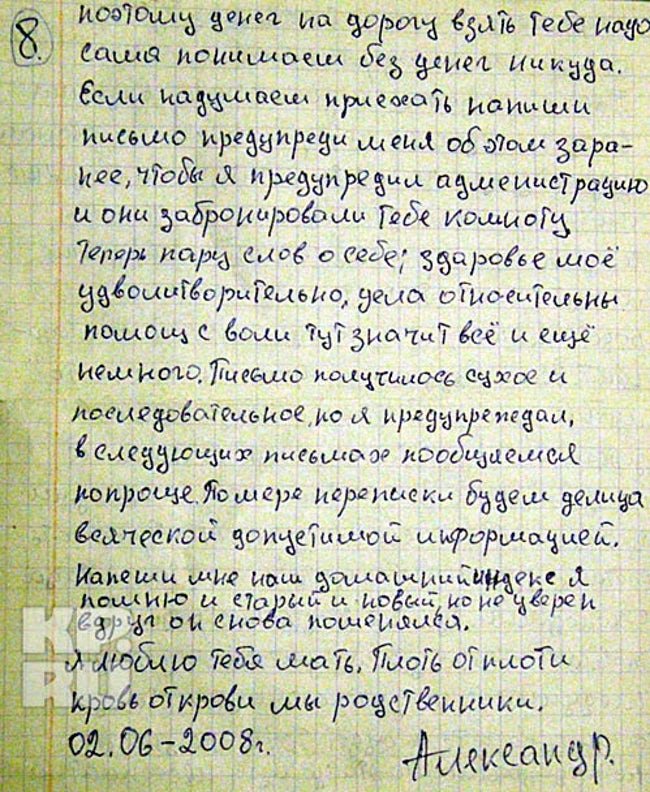 8.
поэтому денег на дорогу взять тебе надо
сама понимаеш без денег никуда.
Если надумаеш приехать напиши
письмо предупреди меня об этом зара-
нее, чтобы я предупредил адменистрацию
и они забронировали тебе комноту
Теперь пару слов о себе; здаровье моё
удволитворительно, дела относительны
помощ с воли тут значит всё и ещё
немного. Письмо получилось сухое и
последовательное, но я предупреждал,
в следующих письмах пообщяемся
попроще. По мере переписки будем делица
всяческой допустимой информацией.
Напеши мне наш домашний индекс я
помню и старый и новый, но не уверен
вдруг он снова поменялся.
Я люблю тебя мать. Плоть от плоти
кровь от крови мы родственники.
02.06-2008г.
Александр.
KP.RU